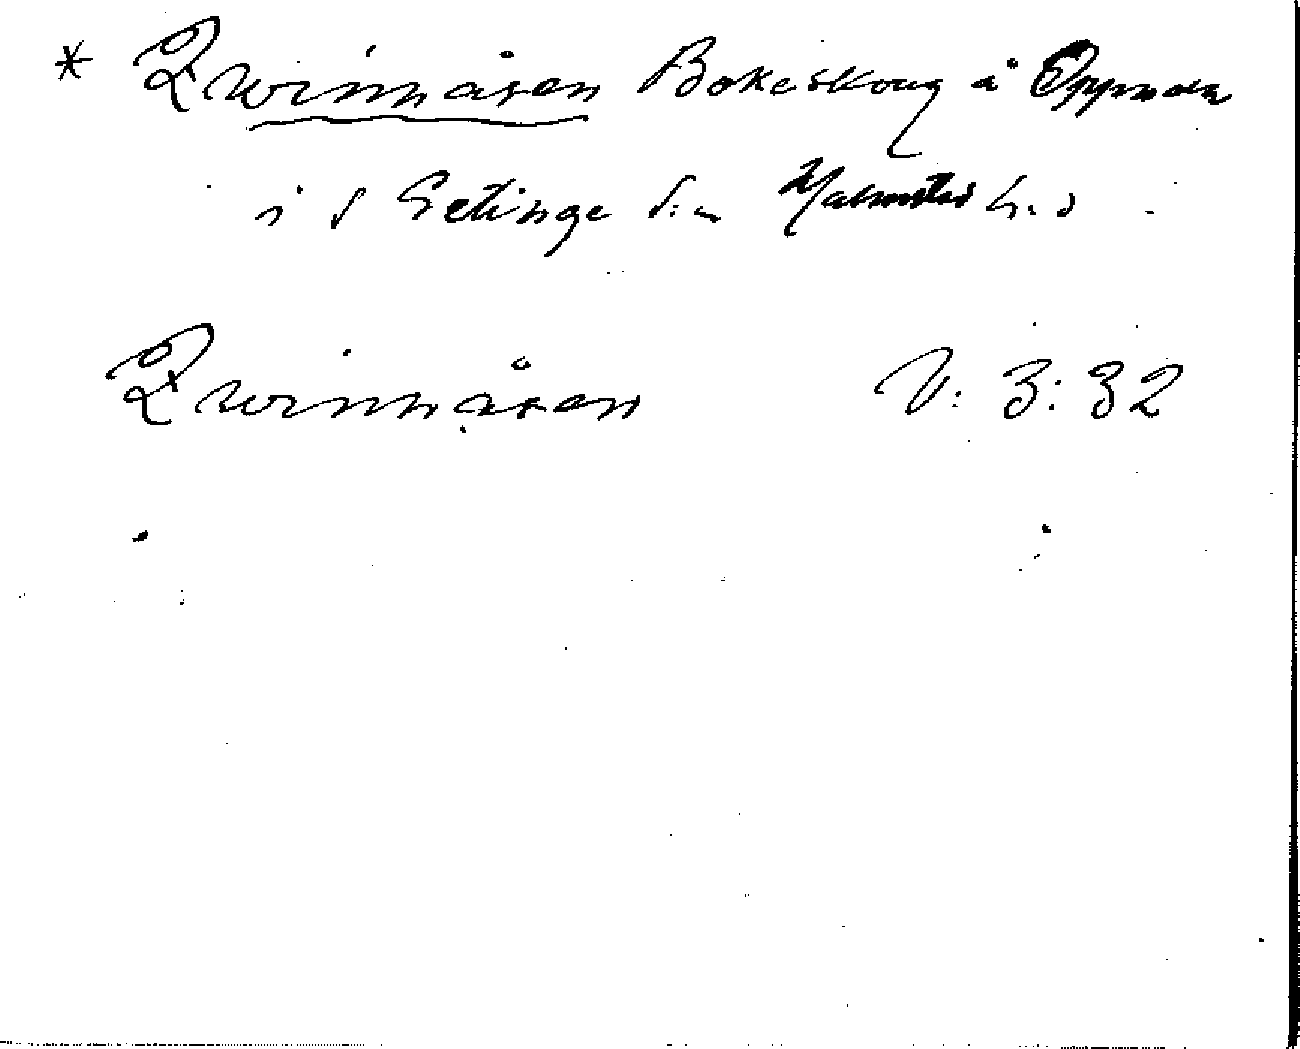 * Qwinnåsen Bokeskoug å Oppmola
i S Getinge S:n Halmstad h:d
Qwinnåsen V: 3: 32